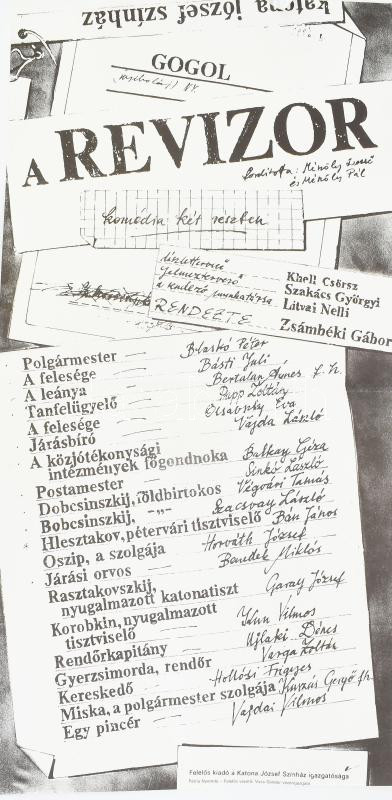 katona józsef színház
GOGOL
A REVIZOR
fordította: Mészöly Dezső
és Mészöly Pál
komédia két részben
díszlettervező Khell Csörsz
jelmeztervező Szakács Györgyi
a rendező munkatársa Litvai Nelli
RENDEZTE Zsámbéki Gábor
Polgármester Blaskó Péter
A felesége Básti Juli
A leánya Bertalan Ágnes f. h.
Tanfelügyelő Papp Zoltán
A felesége Olsavszky Éva
Járásbíró Vajda László
A közjótékonysági
intézmények főgondnoka Balkay Géza
Postamester Sinkó László
Dobcsinszkij, földbirtokos Végvári Tamás
Bobcsinszkij, -„- Szacsvay László
Hlesztakov, pétervári tisztviselő Bán János
Oszip, a szolgája Horváth József
Járási orvos Benedek Miklós
Rasztakovszkij,
nyugalmazott katonatiszt Garay József
Korobkin, nyugalmazott
tisztviselő Kun Vilmos
Rendőrkapitány Ujlaki Dénes
Gyerzsimorda, rendőr Varga Zoltán
Kereskedő Hollósi Frigyes
Miska, a polgármester szolgája Gergő f.h.
Egy pincér Vajdai Vilmos
Felelős kiadó a Katona József Színház igazgatósága